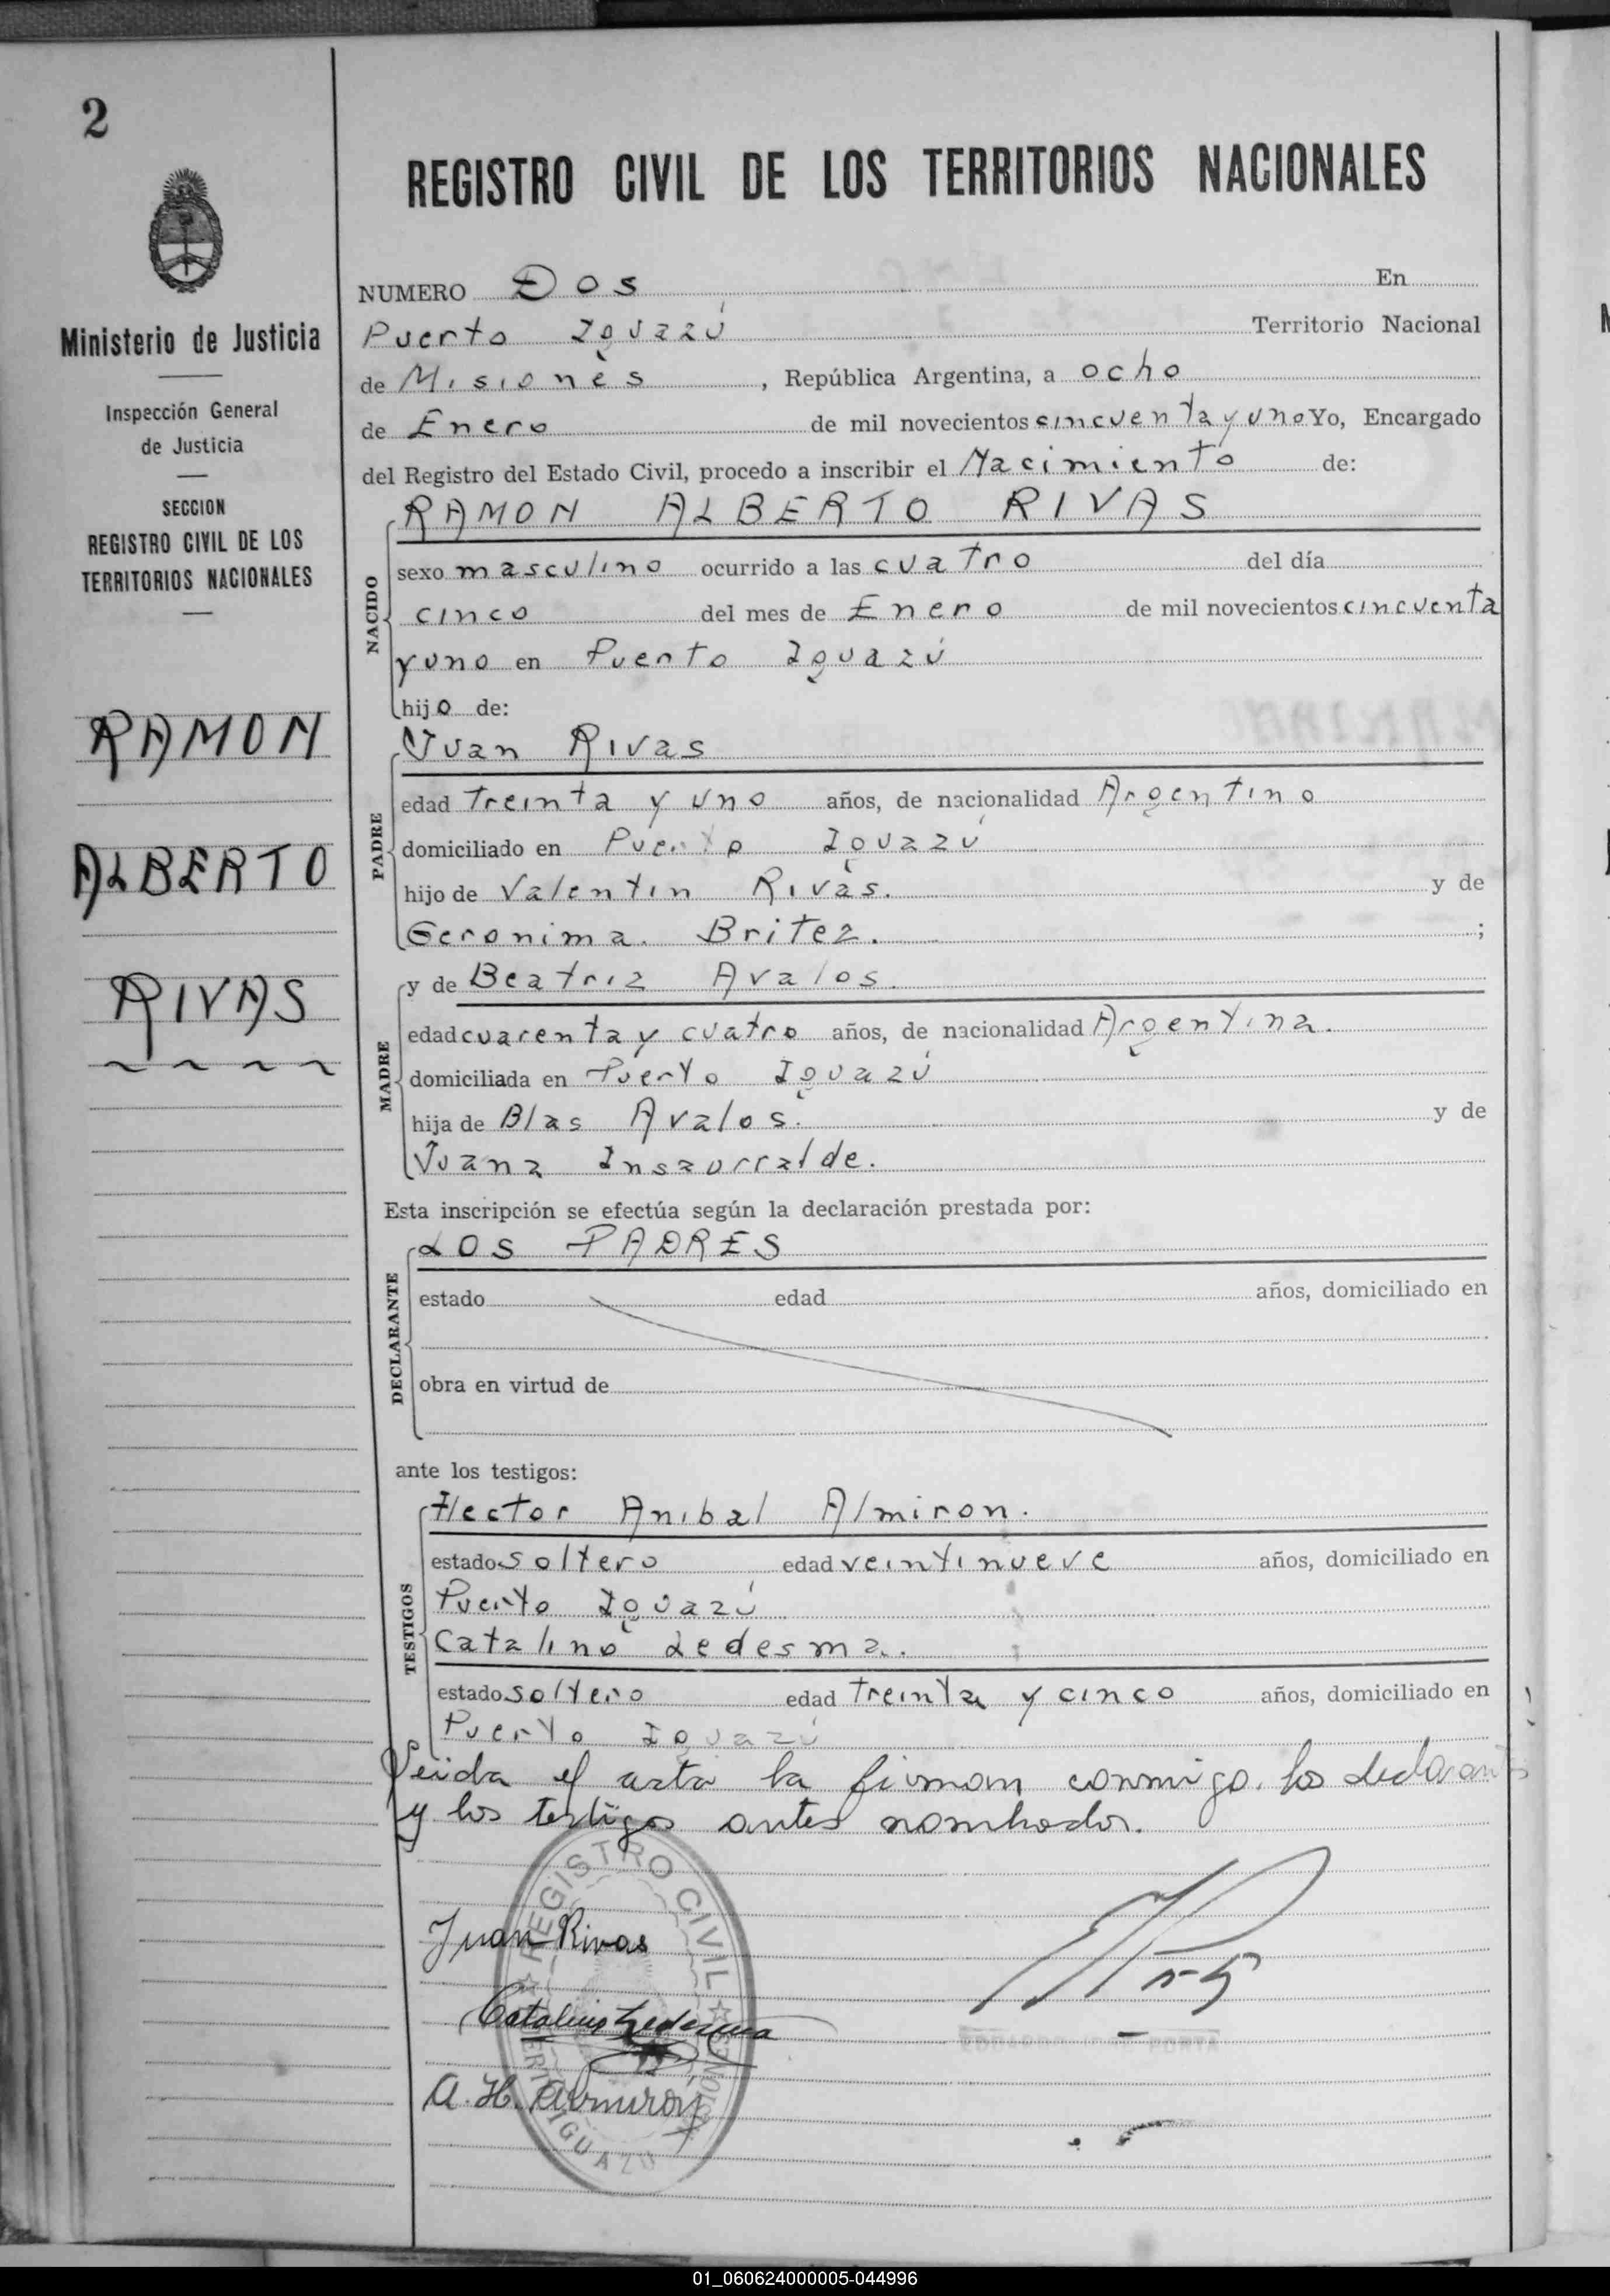 2
REGISTRO CIVIL DE LOS TERRITORIOS NACIONALES
Ministerio de Justicia
Inspección General
de Justicia
SECCION
REGISTRO CIVIL DE LOS
TERRITORIOS NACIONALES
RAMON
ALBERTO
RIVAS
NUMERO Dos En
Puerto Iguazú Territorio Nacional
de Misiones, República Argentina, a ocho
de Enero de mil novecientos cincuenta y uno Yo, Encargado
del Registro del Estado Civil, procedo a inscribir el Nacimiento de:
NACIDO
RAMON ALBERTO RIVAS
sexo masculino ocurrido a las cuatro del día
cinco del mes de Enero de mil novecientos cincuenta
y uno en Puerto Iguazú
hijo de:
PADRE
Juan Rivas
edad treinta y uno años, de nacionalidad Argentino
domiciliado en Puerto Iguazú
hijo de Valentin Rivas. y de
Geronima. Britez. ;
MADRE
y de Beatriz Avalos.
edad cuarenta y cuatro años, de nacionalidad Argentina.
domiciliada en Puerto Iguazú
hija de Blas Avalos. y de
Juana Insaurralde.
Esta inscripción se efectúa según la declaración prestada por:
DECLARANTE
LOS PADRES
estado edad años, domiciliado en
obra en virtud de
ante los testigos:
TESTIGOS
Hector Anibal Almiron.
estado soltero edad veintinueve años, domiciliado en
Puerto Iguazú
Catalino Ledesma.
estado soltero edad treinta y cinco años, domiciliado en
Puerto Iguazú
Leida el acta la firman conmigo, los declarantes
y los testigos antes nombrados.
REGISTRO CIVIL
Juan Rivas
Catalino Ledesma
A. H. Almiron
IGUAZU
PORTA
01_060624000005-044996